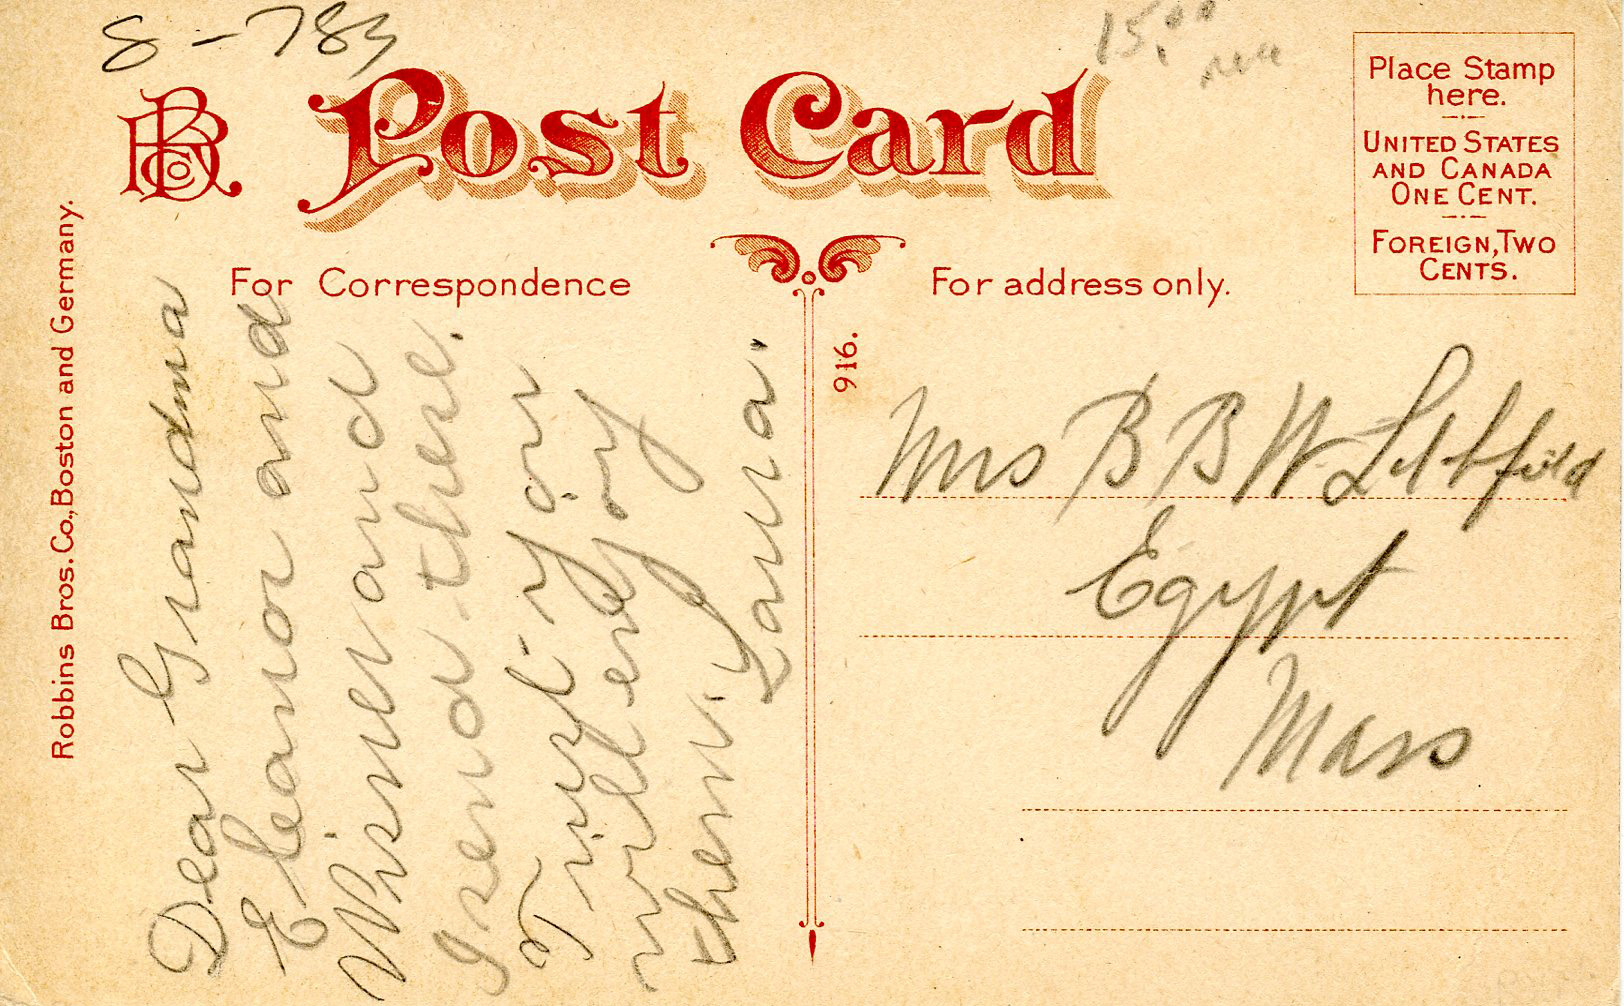 8-783
15.00
Post Card
Place Stamp
here.
UNITED STATES
AND CANADA
ONE CENT.
FOREIGN, TWO
CENTS.
For Correspondence
For address only.
Robbins Bros. Co., Boston and Germany.
916.
Dear Grandma
Eleanor and
and
I send these.
Trust you
will enjoy
them.
Laura.
Mrs B B W
Egypt
Mass